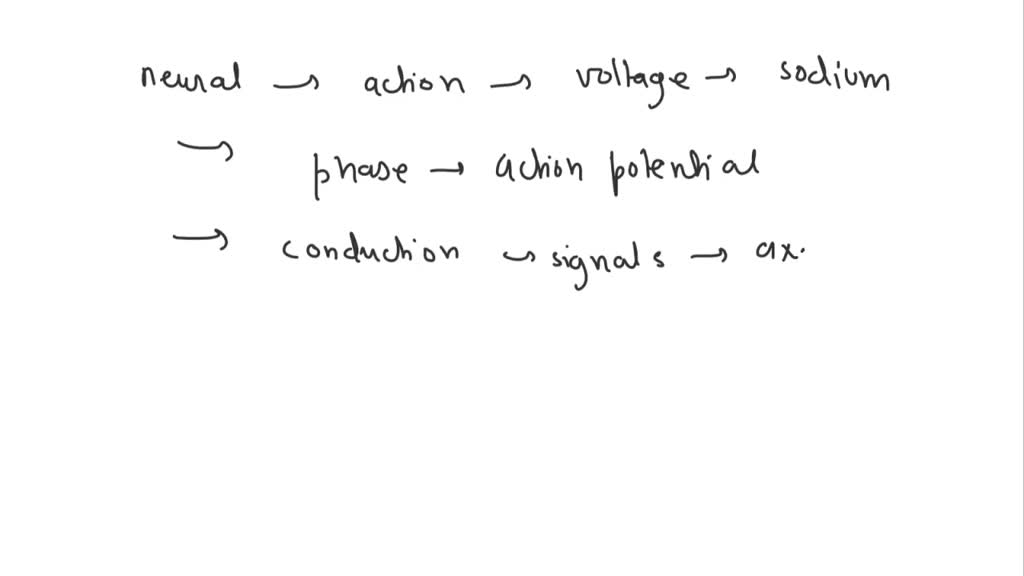 neural → action → voltage → sodium
→ phase → action potential
→ conduction → signals → ax.